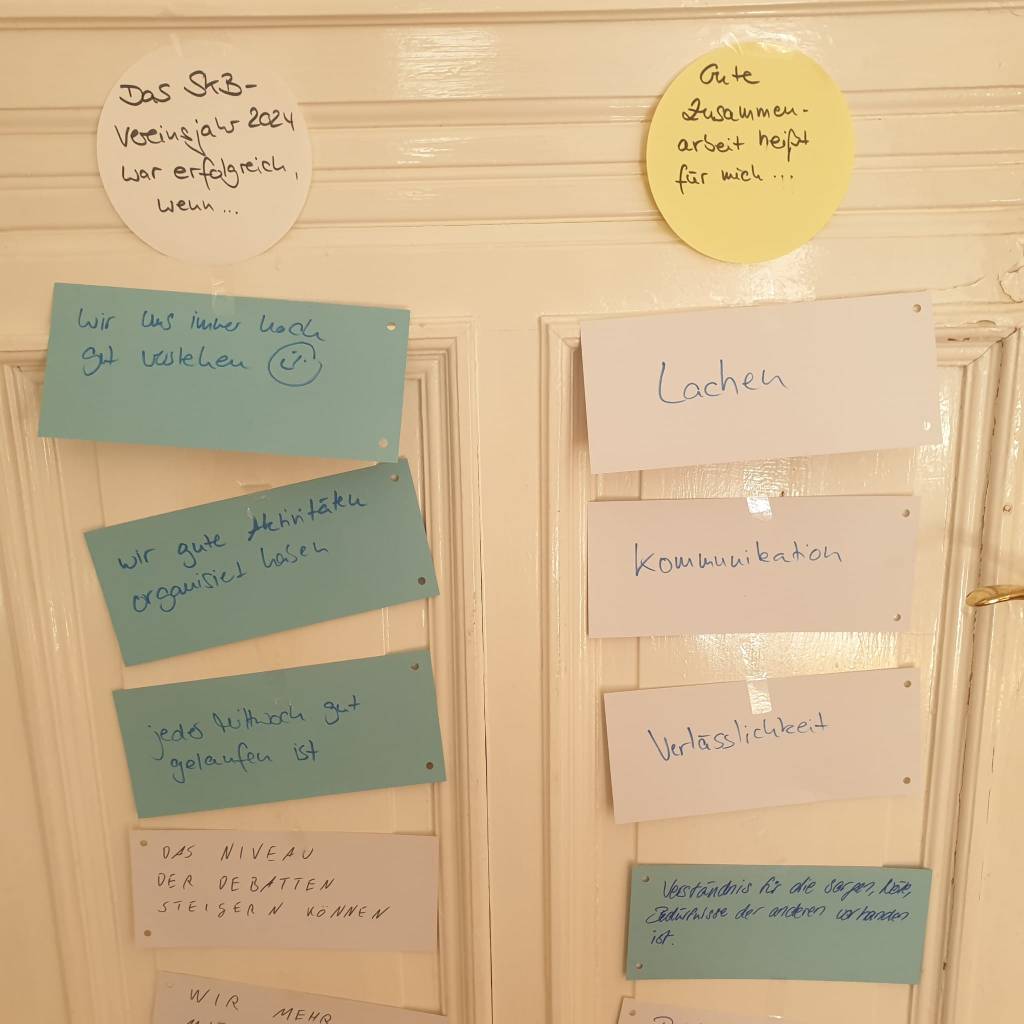 Das StB-
Vereinsjahr 2024
war erfolgreich,
wenn...
wir uns immer noch
gut verstehen
wir gute Aktivitäten
organisiert haben
jeder Mittwoch gut
gelaufen ist
DAS NIVEAU
DER DEBATTEN
STEIGERN KÖNNEN
WIR MEHR
Gute
Zusammen-
arbeit heißt
für mich...
Lachen
Kommunikation
Verlässlichkeit
Verständnis für die Sorgen, Nöte,
Bedürfnisse der anderen vorhanden
ist.